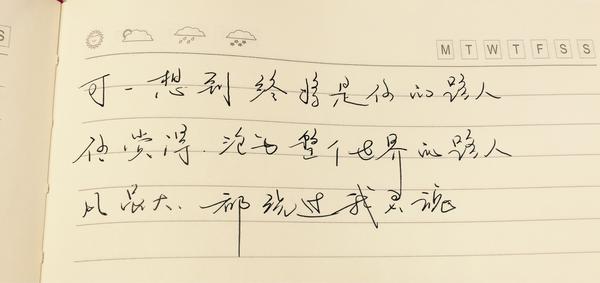 M T W T F S S
可一想到终将是你的路人
便觉得.沦为整个世界的路人
风虽大.都绕过我灵魂